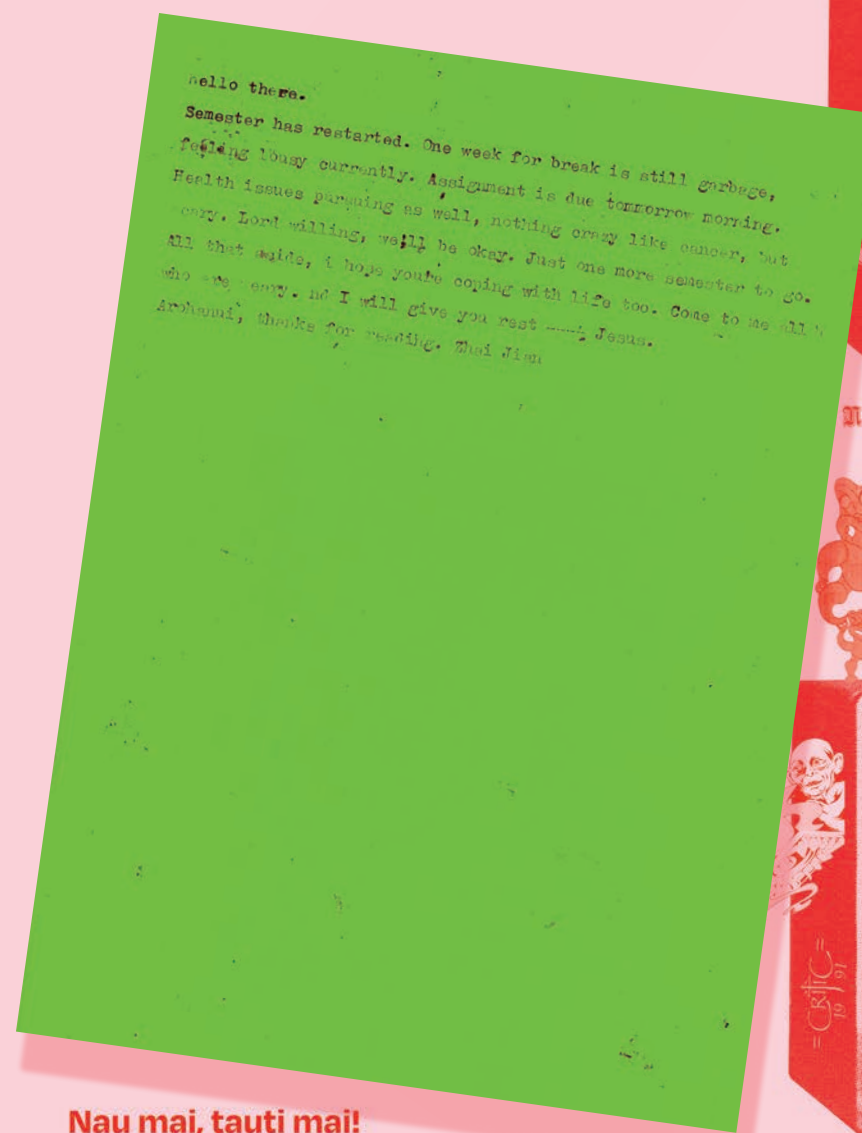 hello there.
Semester has restarted. One week for break is still garbage,
feeling lousy currently. Assignment is due tommorrow morning.
Health issues pursuing as well, nothing crazy like cancer, but
scary. Lord willing, we'll be okay. Just one more semester to go.
All that aside, i hope you're coping with life too. Come to me all
who are weary. nd I will give you rest ----; Jesus.
Arohanui, thanks for reading. Zhai Jian
Nau mai, tauti mai!
=CRITIC=
19 91